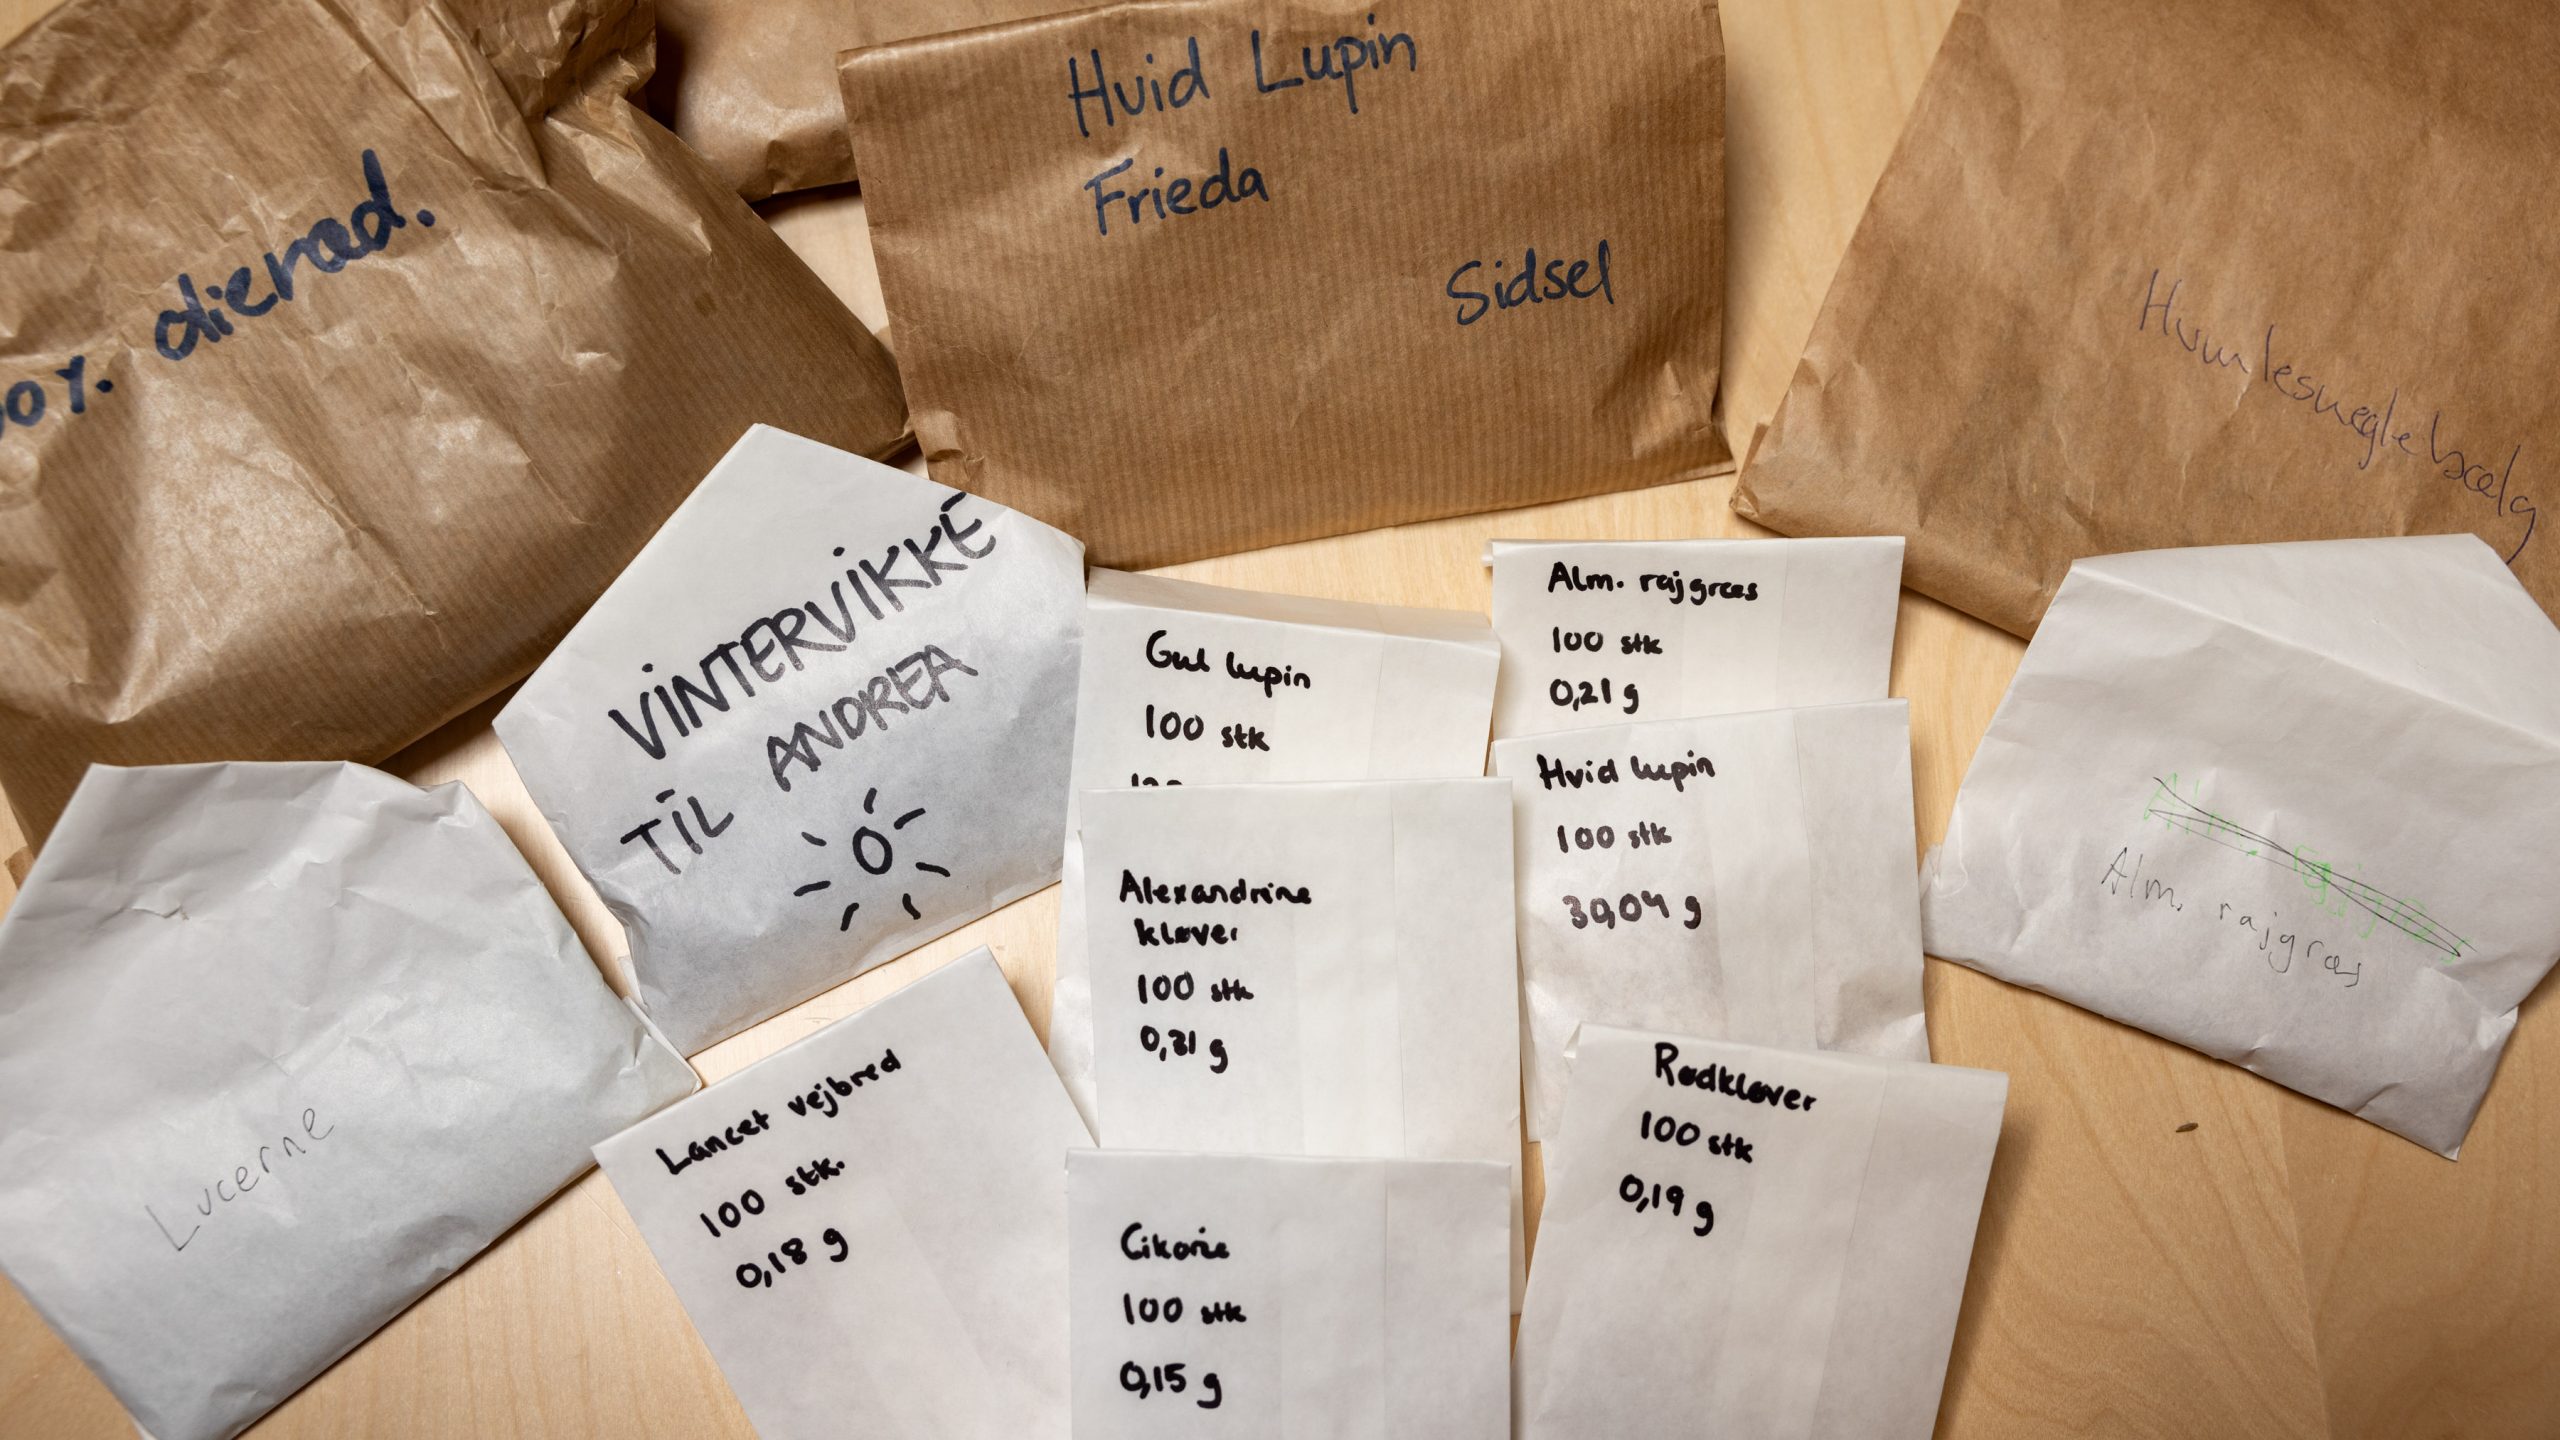 oliered.
Hvid Lupin
Frieda
Sidsel
Humlesneglebælg
VINTERVIKKE
TIL ANDREA
Gul lupin
100 stk
Alm. rajgræs
100 stk
0,21 g
Hvid lupin
100 stk
30,04 g
Alm. rajgræs
Alm. rajgræs
Alexandrine
kløver
100 stk
0,31 g
Lucerne
Lancet vejbred
100 stk.
0,18 g
Rødkløver
100 stk
0,19 g
Cikorie
100 stk
0,15 g